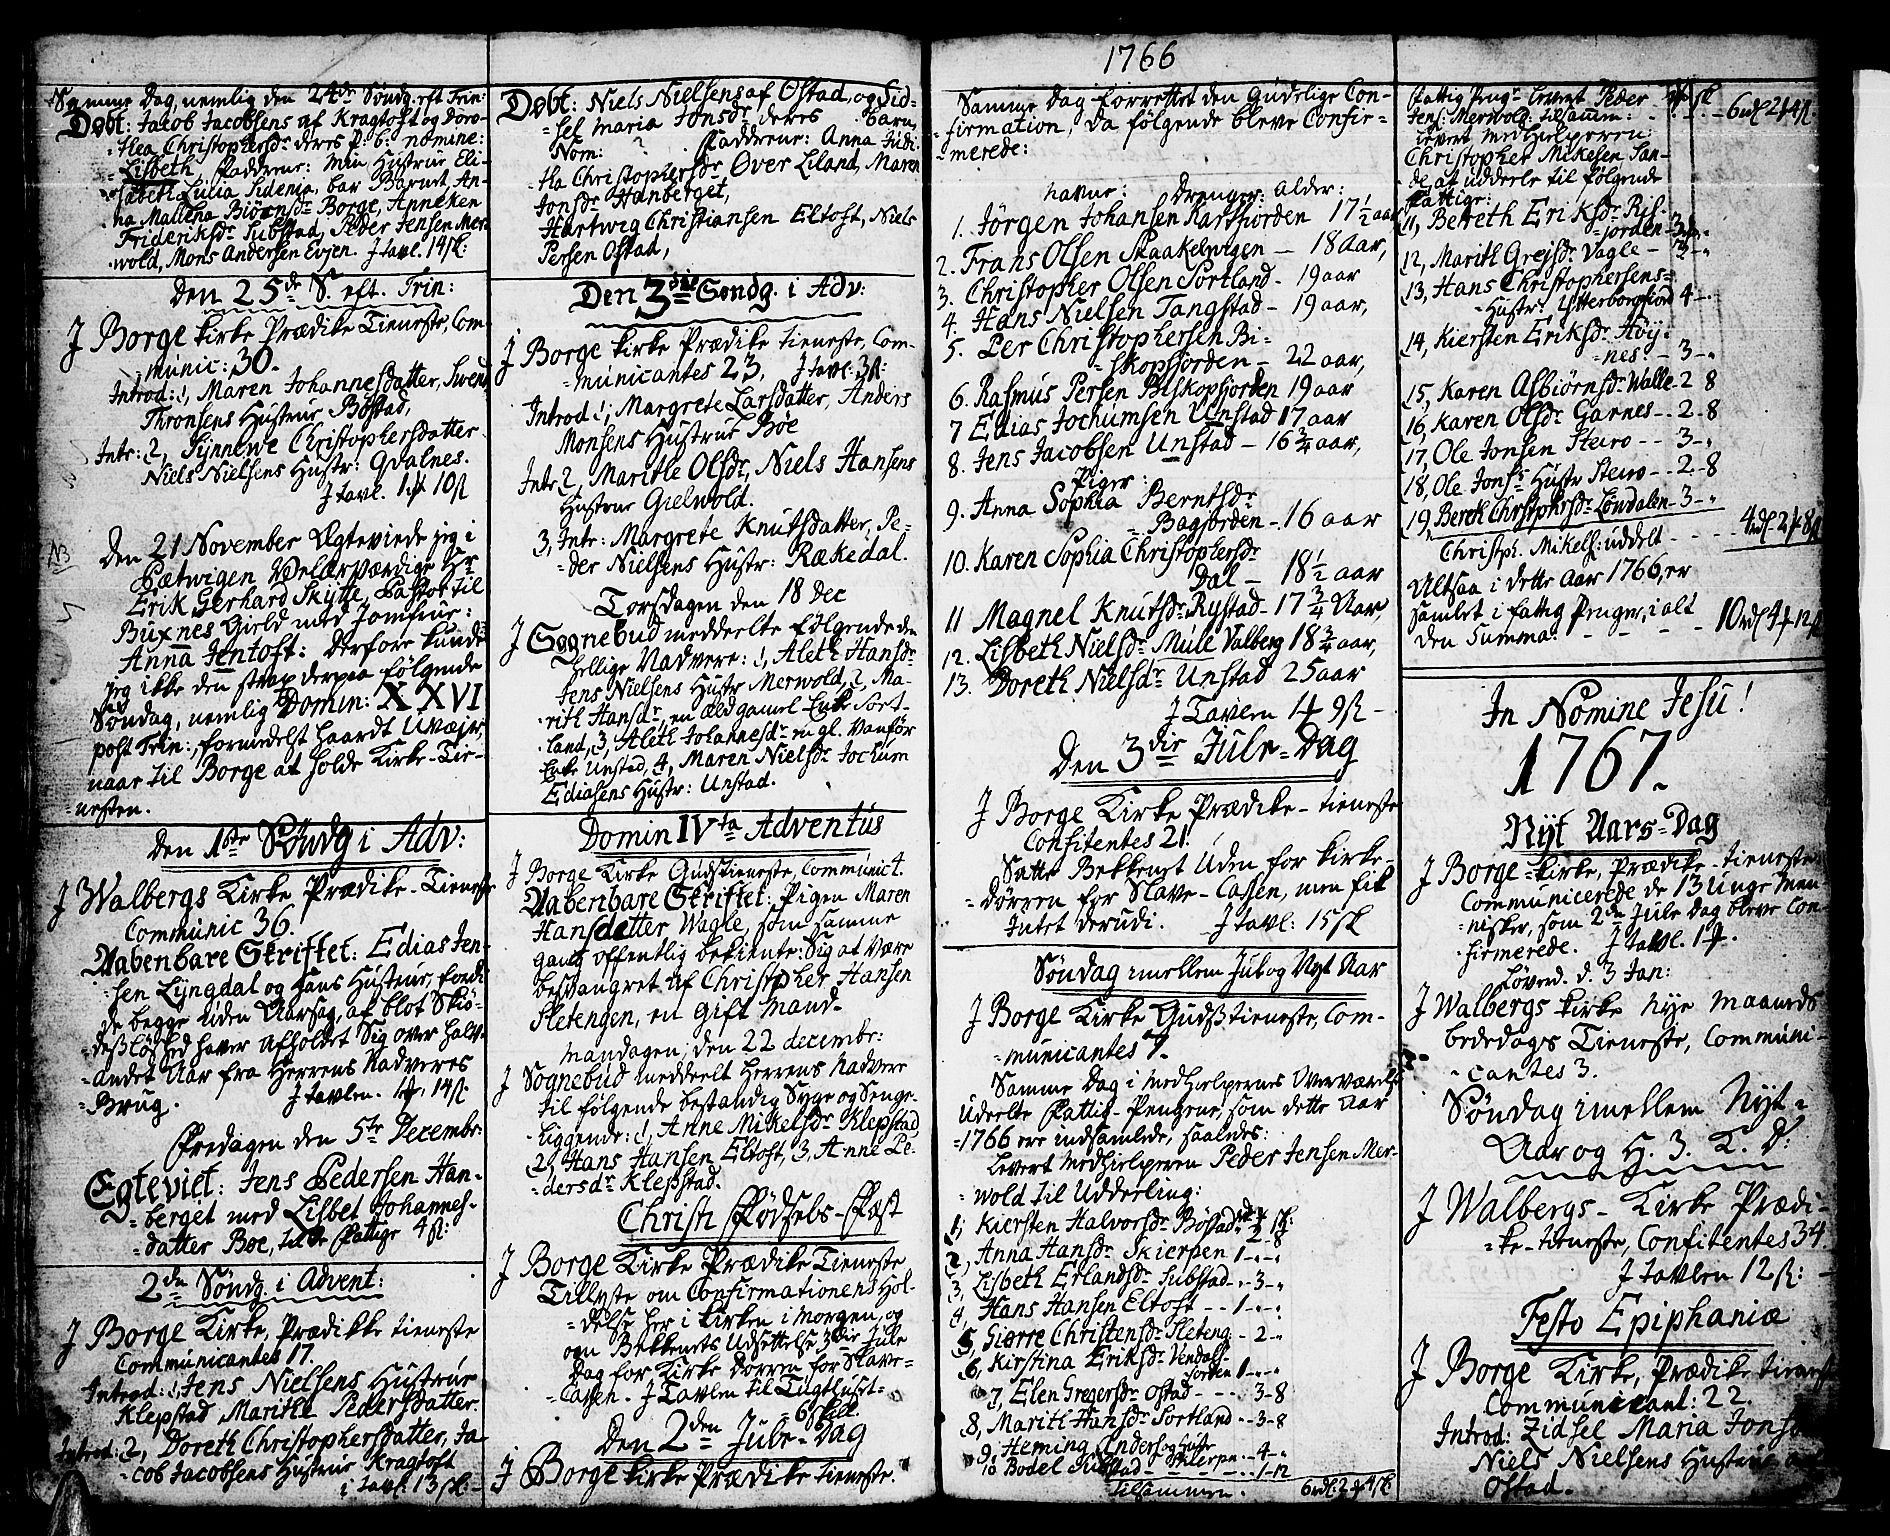 1766
Samme Dag, nemlig den 24de Søndg. eft Trin:
Døbt: Jacob Jacobsens af Kragtoft og Doro-
-thea Christophersdr deres P. b: nomine:
Lisbeth, Fadderne: Min Hustrue Eli-
-sabeth Lucia Sidenia, bar Barnet, An-
na Mallena Biörnsdr Borge, Anneken
Frideriksdr Substad, Peder Jensen Mer-
-wold, Mons Andersen Evjen. J tavl. 14 ſk:
Den 25de S. eft. Trin:
J Borge Kirke Prædike Tieneste, Com-
munic: 30.
Introd: 1, Maren Johannesdatter, Swend
Thronsens Hustrue Böstad,
Intr: 2, Synnewe Christophersdatter
Niels Nielsens Hustr: Qvalnes.
J tavl. 1 ⅌ 10 ſk
NB
Den 21 November Ægteviede jeg i
Pætwigen Velærværdige Hr
Erik Gerhard Skytte, Pastor til
Buxnes Gield med Jomfrue:
Anna Jentoft: Derfore kunde
jeg ikke den strax derpaa følgende
Søndag, nemlig Domin: XXVI
post Trin:, formedelst haardt Uvæjr,
naae til Borge at holde Kirke-Tie-
-nesten.
Den 1ste Söndg i Adv:
J Walbergs Kirke Prædike-Tieneste
Communic 36.
Aabenbare Skriftet: Edias Jen-
-sen Lyngdal og hans Hustrue, fordi
de begge uden Aarsag, af blot Skiö-
-desløshed haver afholdet Sig over halv-
-andet Aar fra Herrens Nadveres
-Brug. J tavlen. 1 ⅌, 14 ſk
Fredagen den 5te Decembr:
Egteviet: Jens Pedersen Han-
-berget med Lisbet Johannes-
-datter Boe, til de Fattige 4 ſk:
2den Söndg i Advent:
J Borge Kirke, Prædikke tieneste
Communicantes 17.
Introd: 1, Jens Nielsens Hustrue
Klepstad Marithe Pedersdatter.
Introd: 2, Doreth Christophersdatter, Ja-
cob Jacobsens Hustrue Kragtoft
i tavl: 13 ſk:
Døbt: Niels Nielsens af Ostad, og Sid-
-sel Maria Jonsdr deres Barn,
Nom: ? Fadderne: Anna Judi-
-tha Christophersdr Over Liland, Maren
Jonsdr Hanberget,
Hartwig Christiansen Eltoft, Niels
Persen Ostad,
Den 3die Søndg. i Adv:
J Borge Kirke Prædike tieneste, Com-
-municantes 23, J tavl: 3 ſk:
Introd 1; Margrete Larsdatter, Anders
Monsens Hustrue Bøe
Intr 2, Marithe Olsdr, Niels Hansens
Hustrue Gielwold.
3, Intr: Margrete Knutsdatter, Pe-
-der Nielsens Hustr: Rækedal.
Torsdagen den 18 Dec
J Sognebud meddeelte følgende den
hellige Nadvere: 1, Aleth Hansdr
Jens Nielsens Hustr Merwold, 2, Ma-
-rith Hansdr, en ældgamel Enke Sort-
-land, 3, Aleth Johannesdr en gl. vanför
Enke Unstad, 4, Maren Nielsdr Jochum
Ediasens Hustr: Unstad.
Domin IVta Adventus
J Borge Kirke Gudstieneste, Communic 4.
Aabenbare Skriftet: Pigen Maren
Hansdatter Wagle, som samme
gang offentlig bekiente Sig at være
besvangret af Christopher Hansen
Sletengen, en gift Mand.
Mandagen, den 22 decembr:
J Sognebud meddeelt Herrens Nadvere
til følgende bestandig Syge og Senge-
liggende: 1, Anne Mikelsdr Klepstad
2, Hans Hansen Eltoft, 3, Anne Pe-
-dersdr Klepstad.
Christi Fødsels-Fæst
J Borge Kirke Prædike Tieneste
Tillyste om Confirmationens Hol-
-delse her i Kirken i Morgen, og
om Bekkenets Udsettelse 3die Jule
Dag for Kirke Dörren for Slave-
-Cassen. J Tavlen til Tugthuset-
6 skill.
Den 2den Jule-Dag
J Borge Kirke Prædike tieneste.
Samme Dag forrettet den Gudelige Con-
-firmation, da følgende bleve Confir-
-merede:
navne: Drenger: alder:
1. Jörgen Johansen Rarfjorden 17½ aar
2. Frans Olsen Skaakelwigen - 18 Aar,
3. Christopher Olsen Sortland - 19 aar
4. Hans Nielsen Tangstad - 19 aar,
5. Per Christophersen Bi-
-skopfjorden - 22 aar,
6. Rasmus Persen Biskopfjorden 19 aar
7 Edias Jochumsen Unstad 17 aar
8. Jens Jacobsen Unstad - 16¾ aar,
Piger:
9. Anna Sophia Berntsdr
- Bagfjorden - 16 aar
10. Karen Sophia Christophersdr
Dal - 18½ aar
11 Magnel Knutsdr Rystad - 17¾ Aar,
12. Lisbeth Nielsdr Mule Valberg 18¾ aar,
13. Doreth Nielsdr Unstad 25 aar
J Tavlen 1 ⅌ 9 ſk -
Den 3die Jule-Dag
J Borge Kirke Prædike-tieneste
Confitentes 21.
Satte Bekkenet Uden for Kirke-
-Dørren for Slave-Cassen, men fik
Intet derudi. J tavl: 15 ſk
Søndag imellem Jul og Nyt Aar
J Borge Kirke Gudstieneste, Com-
-municantes 7.
Samme Dag i Medhielpernes Overværelse
Udeelte Fattig-Pengene, som dette Aar
-1766 ere indsamlede, saaledes:
Levert Medhielperen Peder Jensen Mer-
-wold til Udderling:
1, Kiersten Halvorsdr Böstad - 2-8
2, Anna Hansdr Skierpen 1-"-
3, Lisbeth Erlandsdr Substad - 3-
4, Hans Hansen Eltoft - - 1-"-
5, Giørre Christensdr Sleteng - 2-"
6, Kirstina Eriksdr Vendals-
jorden 1-"
7, Elen Gregersdr Ostad - - - 3-8
8, Marith Hansdr Sortland - - 3-8
9, Heming Anders og Hustr
Skierpn - 4-"
10 Bodel Substad - - - - 1-12
Tilsammen. 6 rdl: 2 ⅌ 4 ſk:
Fattig Penge levert Peder
Jens: Merwold: tilsamm: - - - 6 rdl 2 ⅌ 4 ſk:
Levert Medhielperen
Christopher Mikelsen San-
de, at udderle til følgende
Fattige:
11, Bereth Eriksdr Ris-
-jorden - 3-"
12, Marith Grejsdr Vagle -
13, Hans Christophersens
Hustr: Ytterborgfiord 4-
14, Kiersten Eriksdr Höy-
-nes - 3-"
15, Karen Asbiörnsdr Walle - 2 8
16, Karen Olsdr Garnes - - 2-8
17, Ole Jonsen Steiro - - 3-"
18, Ole Jonss Hustr Steiro - - 2-8
19, Bereth Christophersdr Löndalen - 3-"
Christph. Mikels: uddelt - - - 4 rdl 2 ⅌ 8 ſk
Altsaa i dette Aar 1766, er
samlet i fattig Penger, i alt
den Summa. - - - - 10 rdl 4 ⅌ 12 ſk
In Nomine Jesu!
1767.
Nyt Aars-Dag
J Borge-Kirke, Prædike-tieneste
Communicerede de 13 Unge Men-
-nisker, som 2den Jule Dag bleve Con-
-firmerede. J tavl. 1 ⅌.
Löverd. d. 3 Jan:
J Walbergs Kirke Nye Maaneds
bededags Tieneste, Communi-
-cantes 3.
Søndag imellem Nyt-
Aar og H. 3. K. D:
J Walbergs-Kirke Prædi-
-ke-tieneste, Confitentes 34
J tavlen 12 ſk: -
Festo Epiphaniæ
J Borge Kirke, Prædike tieneste
Communicant: 22.
Introd: Zidsel Maria Jonsdr
Niels Nielsens Hustrue
Ostad.